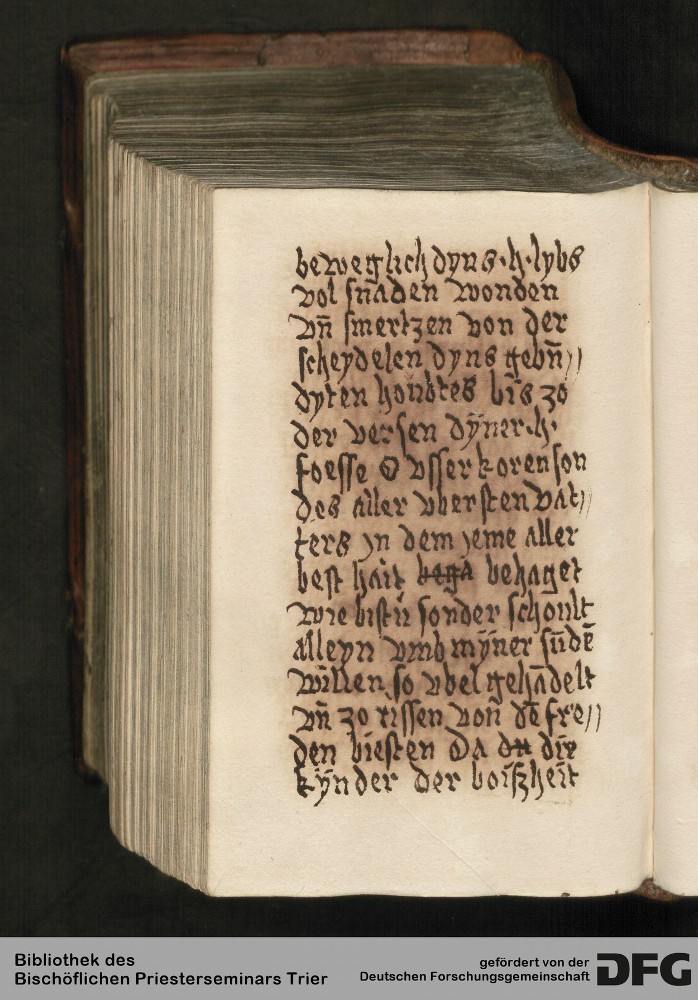 beweglich dyns .h. lybs
vol snaden wonden
vn̄ smertzen von der
scheydelen dyns gebn̄//
dyten houbtes bis zo
der versen dyner .h.
foesse O vsserkoren son
des aller vbersten vat//
ters jn dem jeme aller
best hait behaget
wie bistu sonder schoult
alleyn vmb myner sūdē
willen so vbel gehādelt
vn̄ zo rissen von dē fre//
den biesten Da du die
kynder der boißheit
Bibliothek des
Bischöflichen Priesterseminars Trier
gefördert von der
Deutschen Forschungsgemeinschaft DFG